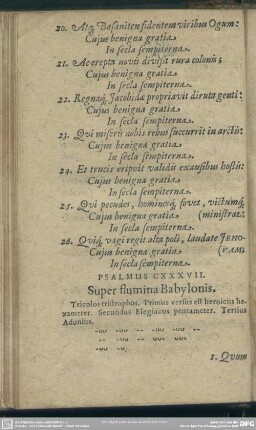 20. Atq́; Basaniten fidentem viribus Ogum:
Cujus benigna gratia.
In secla sempiterna.
21. Ac erepta novis divisit rura colonis;
Cujus benigna gratia
In secla sempiterna.
22. Regnaq́; Jacobidæ propriavit diruta genti:
Cujus benigna gratia
In secla sempiterna.
23. Qvi miseris nobis rebus succurrit in arctis:
Cujus benigna gratia
In secla sempiterna.
24. Et trucis eripuit validi ex ausibus hostis:
Cujus benigna gratia
In secla sempiterna.
25. Qvi pecudes, hominesq́; fovet, victumq́;
Cujus benigna gratia (ministrat:
In secla sempiterna.
26. Qviq́; vagi regit alta poli, laudate JEHO-
Cujus benigna gratia (VAM:
In secla sempiterna.
PSALMUS CXXXVII.
Super flumina Babylonis.
Tricolos tristrophos. Primus versus est heroicus he-
xameter. Secundus Elegiacus pentameter. Tertius
Adonius.
1. Qvum